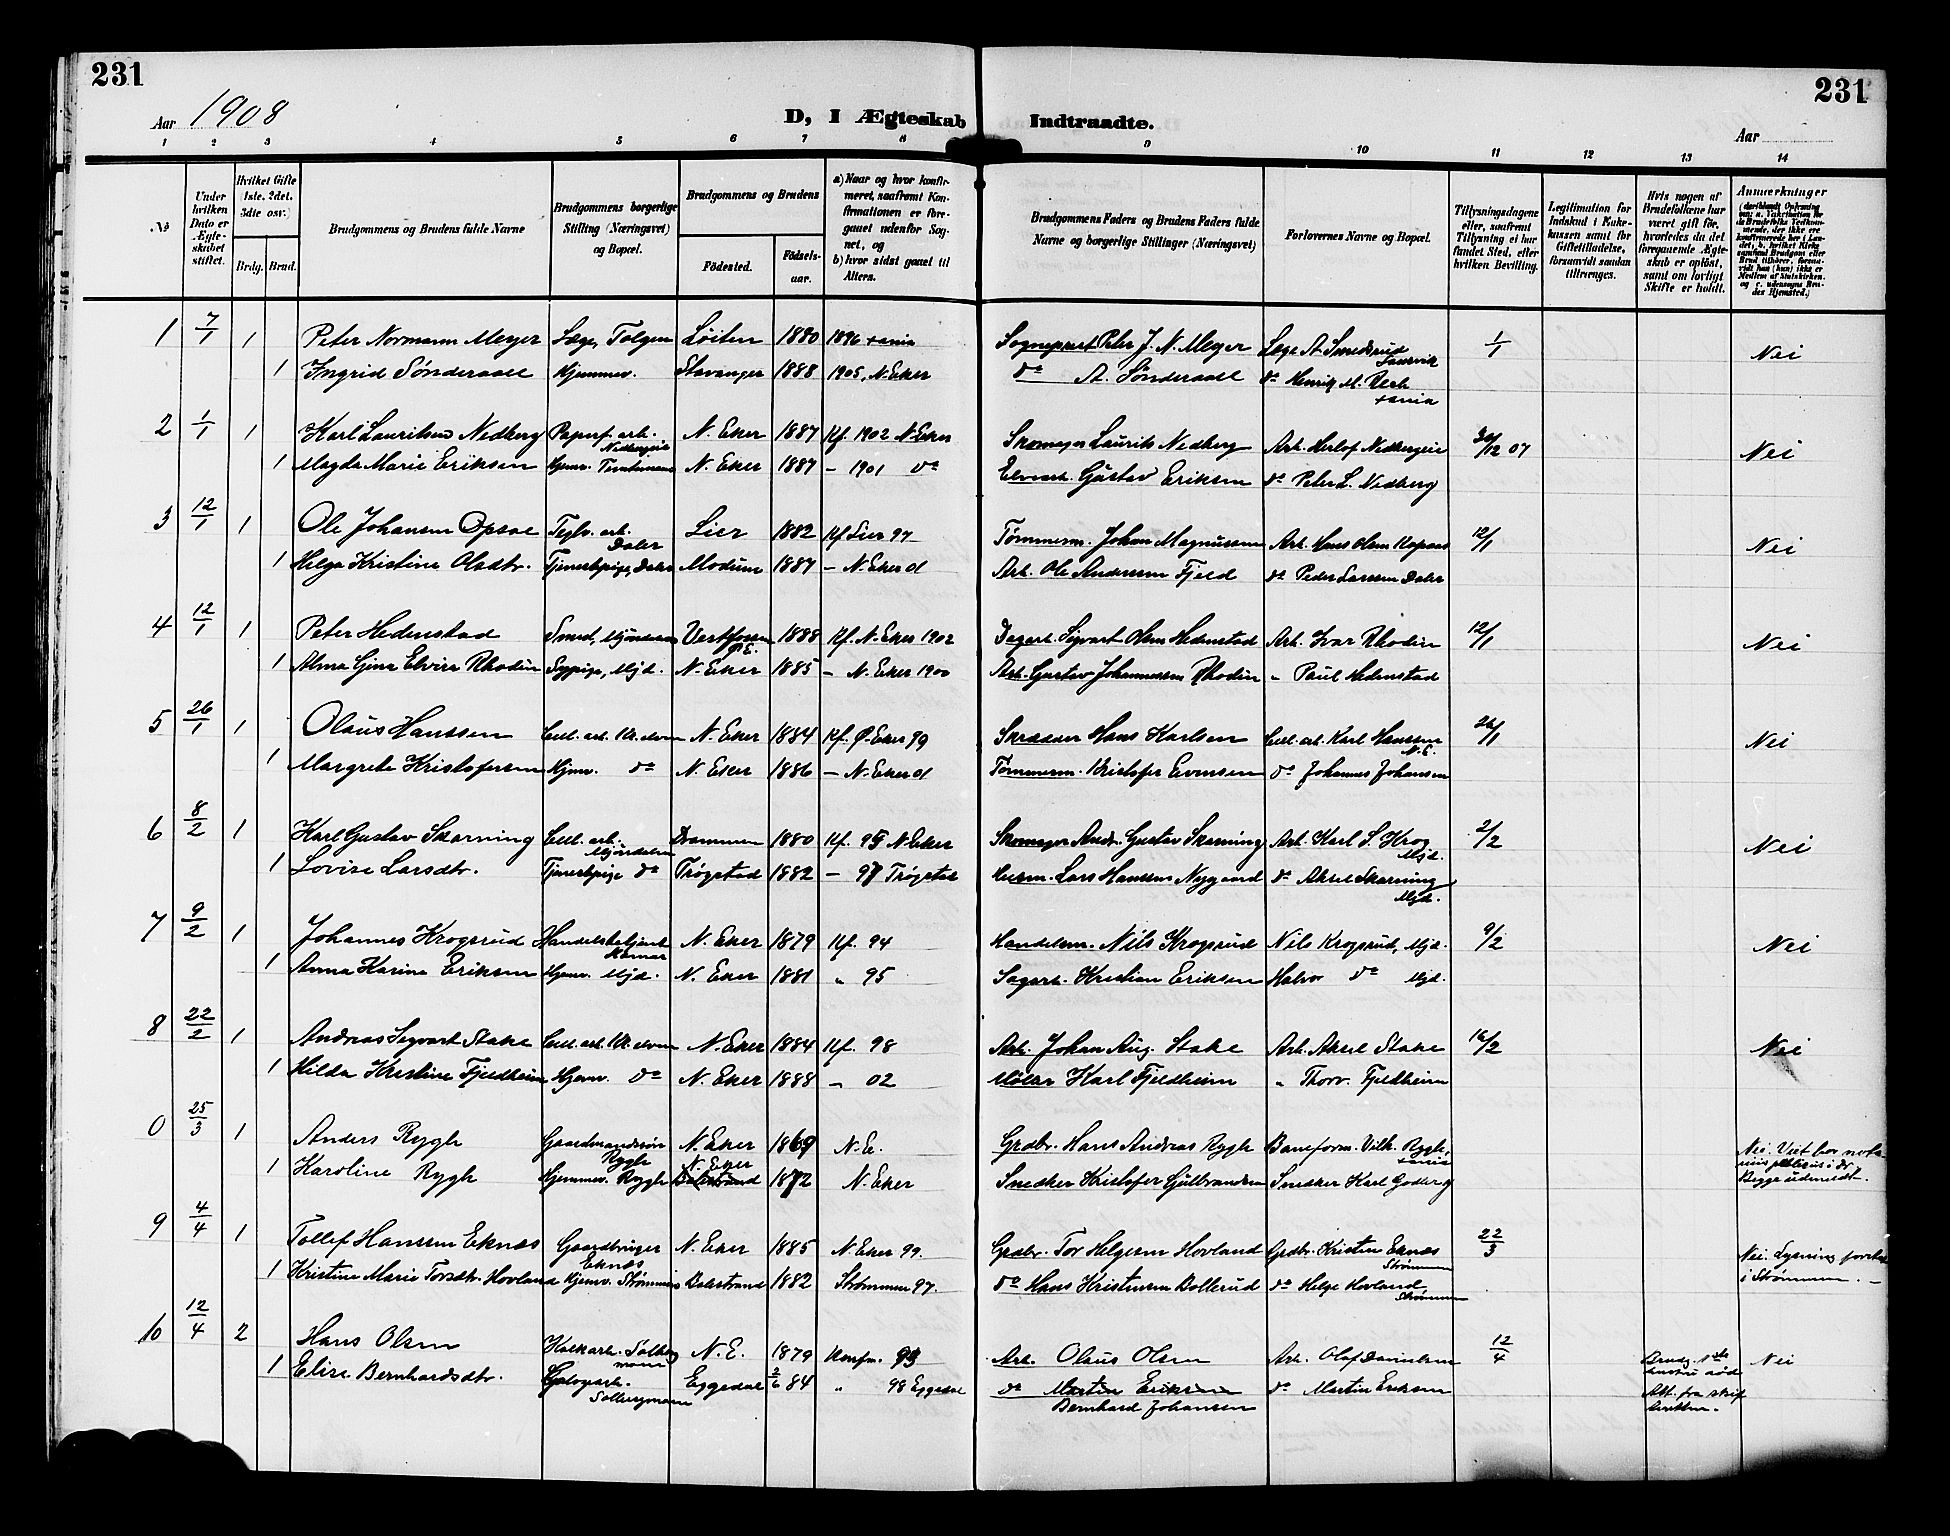 231
231
Aar 1908
D, I Ægteskab Indtraadte.
Aar
1 2 3 4 5 6 7 8 9 10 11 12 13 14
№
Under hvilken Dato er Ægteskabet stiftet.
Hvilket Gifte (1ste, 2det, 3die osv.)
Brdg. Brud.
Brudgommens og Brudens fulde Navne
Brudgommens borgerlige Stilling (Næringsvei) og Bopæl.
Brudgommens og Brudens
Fødested. Fødselsaar.
a) Naar og hvor konfirmeret, saafremt Konfirmationen er foregaaet udenfor Sognet, og
b) hvor sidst gaaet til Alters.
Brudgommens Faders og Brudens Faders fulde Navne og borgerlige Stillinger (Næringsvei)
Forlovernes Navne og Bopæl.
Tillysningsdagene eller, saafremt Tillysning ei har fundet Sted, efter hvilken Bevilling.
Legitimation for Indskud i Enkekassen samt for Giftetilladelse, forsaavidt saadan tiltrænges.
Hvis nogen af Brudefolkene har været gift før, hvorledes da det foregaaende Ægteskab er opløst, samt om lovligt Skifte er holdt.
Anmærkninger
1 7/1 1 Peter Normann Meyer Læge, Tolgen Løiten 1880 1896 Xania Sognepræst Peter J. N. Meyer Læge A. Smedsrud 1/1 Nei
1 Ingrid Sønderaael Hjemmev. Stavanger 1888 1905, N. Eker do A. Sønderaael do Henrik M.
Xania
2 1/1 1 Karl Lauritsen Nedberg Papirf. arb. N. Eker 1887 Kf. 1902 N. Eker Skomager Laurits Nedberg Arb. Herlof Nedbergeie 30/12 07 Nei
1 Magda Marie Eriksen Hjemv. N. Eker 1887 – 1901 do Elvearb. Gustav Eriksen do Peter L. Nedberg
3 12/1 1 Ole Johansen Opsal Teglv. arb. Daler Lier 1882 Kf Lier 97 Tømmerm. Johan Magnussen Arb. Hans Olsen 12/1 Nei
1 Helga Kristine Olsdtr. Tjenestepige, Daler Modum 1887 – N. Eker 01 Arb. Ole Andersen Fjeld do Peder Larssen Daler
4 12/1 1 Peter Hedenstad Smed, Mjøndalen Vestfossen Ø.E. 1888 Kf. N. Eker 1902 Dagarb. Sigvart Olsen Hedenstad Arb. Ivar Rhodin 12/1 Nei
1 Alma Gina Elvire Rhodin Sypige, Mjd. N. Eker 1885 – N. Eker 1900 Arb. Gustav Johannessen Rhodin " Paul Hedenstad
5 26/1 1 Olaus Hanssen Cell. arb. Kr. elven N. Eker 1884 Kf. Ø. Eker 99 Skrædder Hans Karlsen Cell. arb. Karl Hanssen N.E. 26/1 Nei
1 Margrete Kristofersen Hjemv. do N. Eker 1886 – N. Eker 01 Tømmerm. Kristofer Evensen do Johannes Johansen
6 8/2 1 Karl Gustav Skarning Cell. arb. Mjøndalen Drammen 1880 Kf. 95 N. Eker Skomager Andr. Gustav Skarning Arb. Karl S. Krog Mjd. 2/2 Nei
1 Lovise Larsdtr. Tjenestepige do Trøgstad 1882 – 97 Trøgstad Husm. Lars Hanssen Nygaard do Aksel Skarning Mjd.
7 9/2 1 Johannes Krogsrud Handelsbetjent Hamar N. Eker 1879 Kf. 94 Handelsm. Nils Krogsrud Nils Krogsrud, Mjd. 9/2 Nei
1 Anna Karine Eriksen Hjemv. Mjd. N. Eker 1881 " 95 Sagarb. Kristian Eriksen Halvor do Mjd.
8 22/2 1 Andreas Sigvart Stake Cell. arb. Kr. elven N. Eker 1884 Kf. 98 Arb. Johan Aug. Stake Arb. Aksel Stake 16/2 Nei
1 Hilda Kristine Fjeldheim Hjemv. do N. Eker 1888 – 02 Møller Karl Fjeldheim " Thorv. Fjeldheim
0 25/3 1 Anders Rygh Gaardmandssøn Rygh N. Eker 1869 N. E. Grdbr. Hans Andreas Rygh Baneform. Vilh. Rygh, Xania Nei. Viet hos notarius publicus i Dr. Begge udmeldt.
1 Karoline Rygh Hjemmev. Rygh N. Eker Balestrand 1872 N. Eker Snedker Kristofer Gulbrandsen Snedker Karl Godberg
9 4/4 1 Tollef Hanssen Eknæs Gaardbruger Eknæs N. Eker 1885 N Eker 99. Grdbr. Tor Helgesen Hovland Grdbr. Kristen Eknæs Strømmen 22/3 Nei. Lysning foretat i Strømmen. –
1 Kristine Marie Torsdtr. Hovland Hjemv. Strømmen Balestrand 1882 Strømmen 97. do Hans Kristensen Bollerud do Helge Hovland Strømmen
10 12/4 2 Hans Olsen Kalkarb. Solbergmoen N. E. 1879 Konfm. 93 Arb. Olaus Olsen Arb. Olaf Danielsen 12/4 Brudg. 1ste hustru død Att. fra skifteretten. Nei
1 Elise Bernhardsdtr. Solbergmoen Eggedal 2/6 84 " 98 Eggedal do Martin Eriksen do Martin Eriksen
Bernhard Johansen